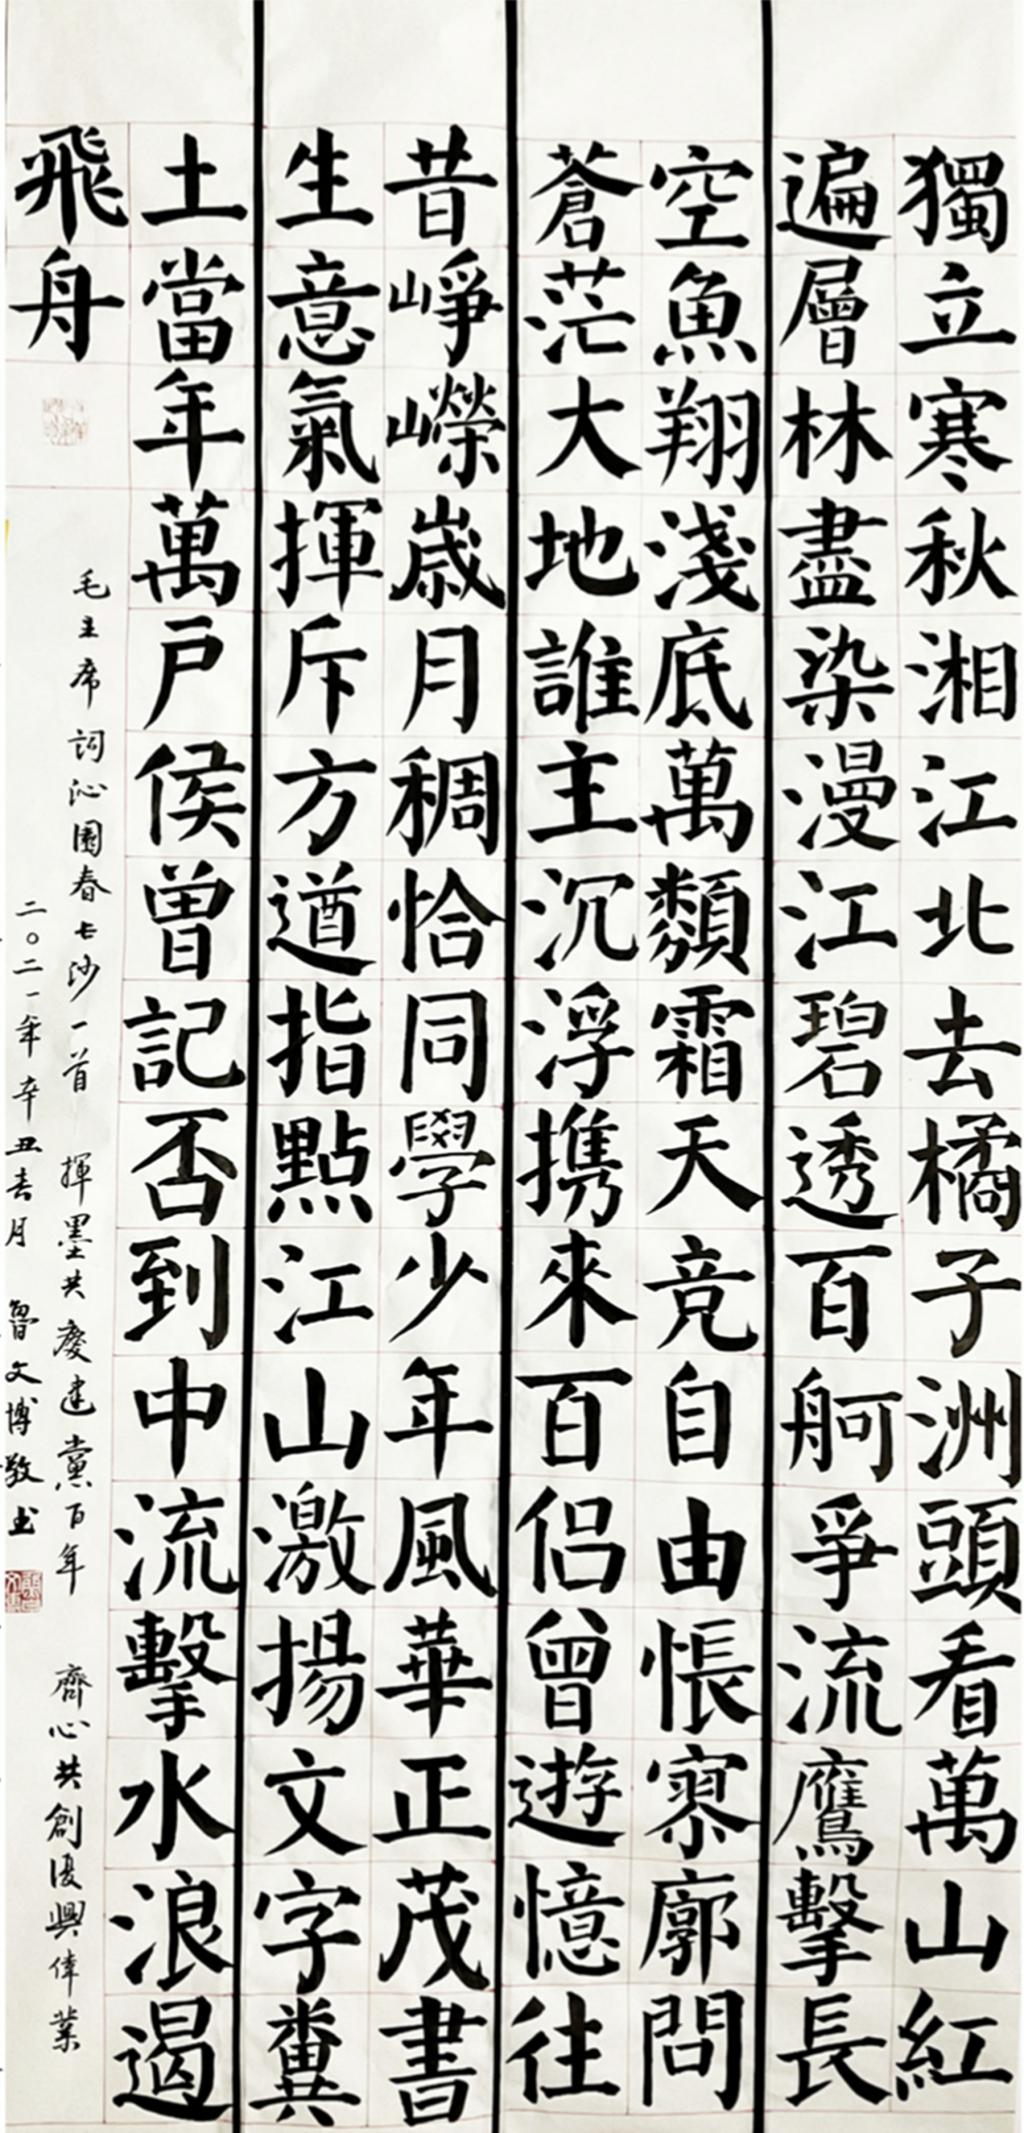 獨立寒秋湘江北去橘子洲頭看萬山紅
遍層林盡染漫江碧透百舸爭流鷹擊長
空魚翔淺底萬類霜天竞自由悵寥廓問
蒼茫大地誰主沉浮携來百侣曾遊憶往
昔崢嶸歲月稠恰同學少年風華正茂書
生意氣揮斥方遒指點江山激揚文字糞
土當年萬戶侯曾記否到中流擊水浪遏
飛舟
毛主席詞沁園春長沙一首 揮墨共慶建黨百年 齊心共創復興偉業
二〇二一年辛丑春月 魯文博敬书